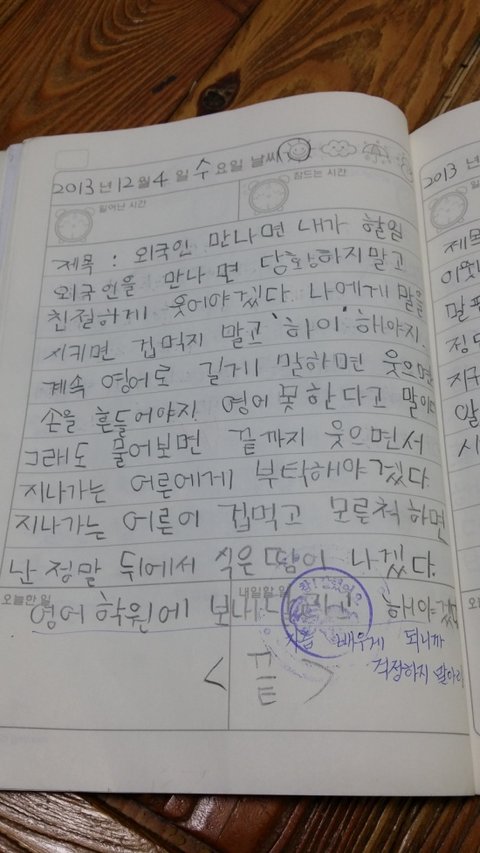 2013년 12월 4일 수요일 날씨
일어난 시간
잠드는 시간
제목 : 외국인 만나면 내가 할일
외국인을 만나면 당황하지말고
친절하게 웃어야겠다. 나에게 말을
시키면 겁먹지 말고 '하이' 해야지.
계속 영어로 길게 말하면 웃으면
손을 흔들어야지 영어 못한다고 말이다
그래도 물어보면 끝까지 웃으면서
지나가는 어른에게 부탁해야겠다
지나가는 어른이 겁먹고 모른척하면
난 정말 뒤에서 식은땀이 나겠다.
오늘한 일
내일할 일
영어 학원에 보내 해야겠
지금 배우게 되니까
걱정하지 말아라
<끝>
2013 년
제목